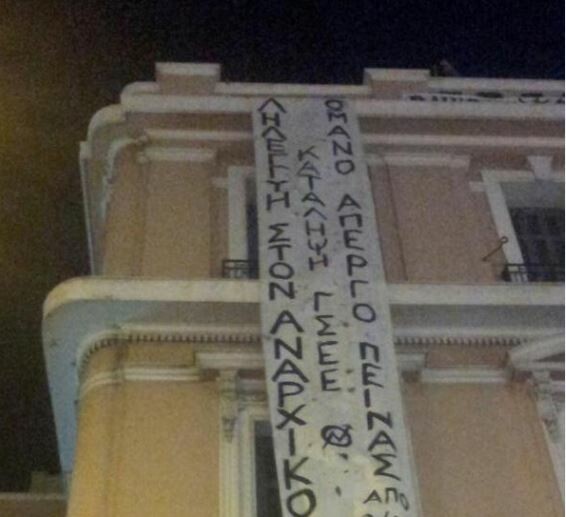 ΛΗΛΕΓΓΥΗ ΣΤΟΝ ΑΝΑΡΧΙΚΟ
ΚΑΤΑΛΗΨΗ ΓΣΕΕ
ΩΜΑΝΟ ΑΠΕΡΓΟ ΠΕΙΝΑΣ